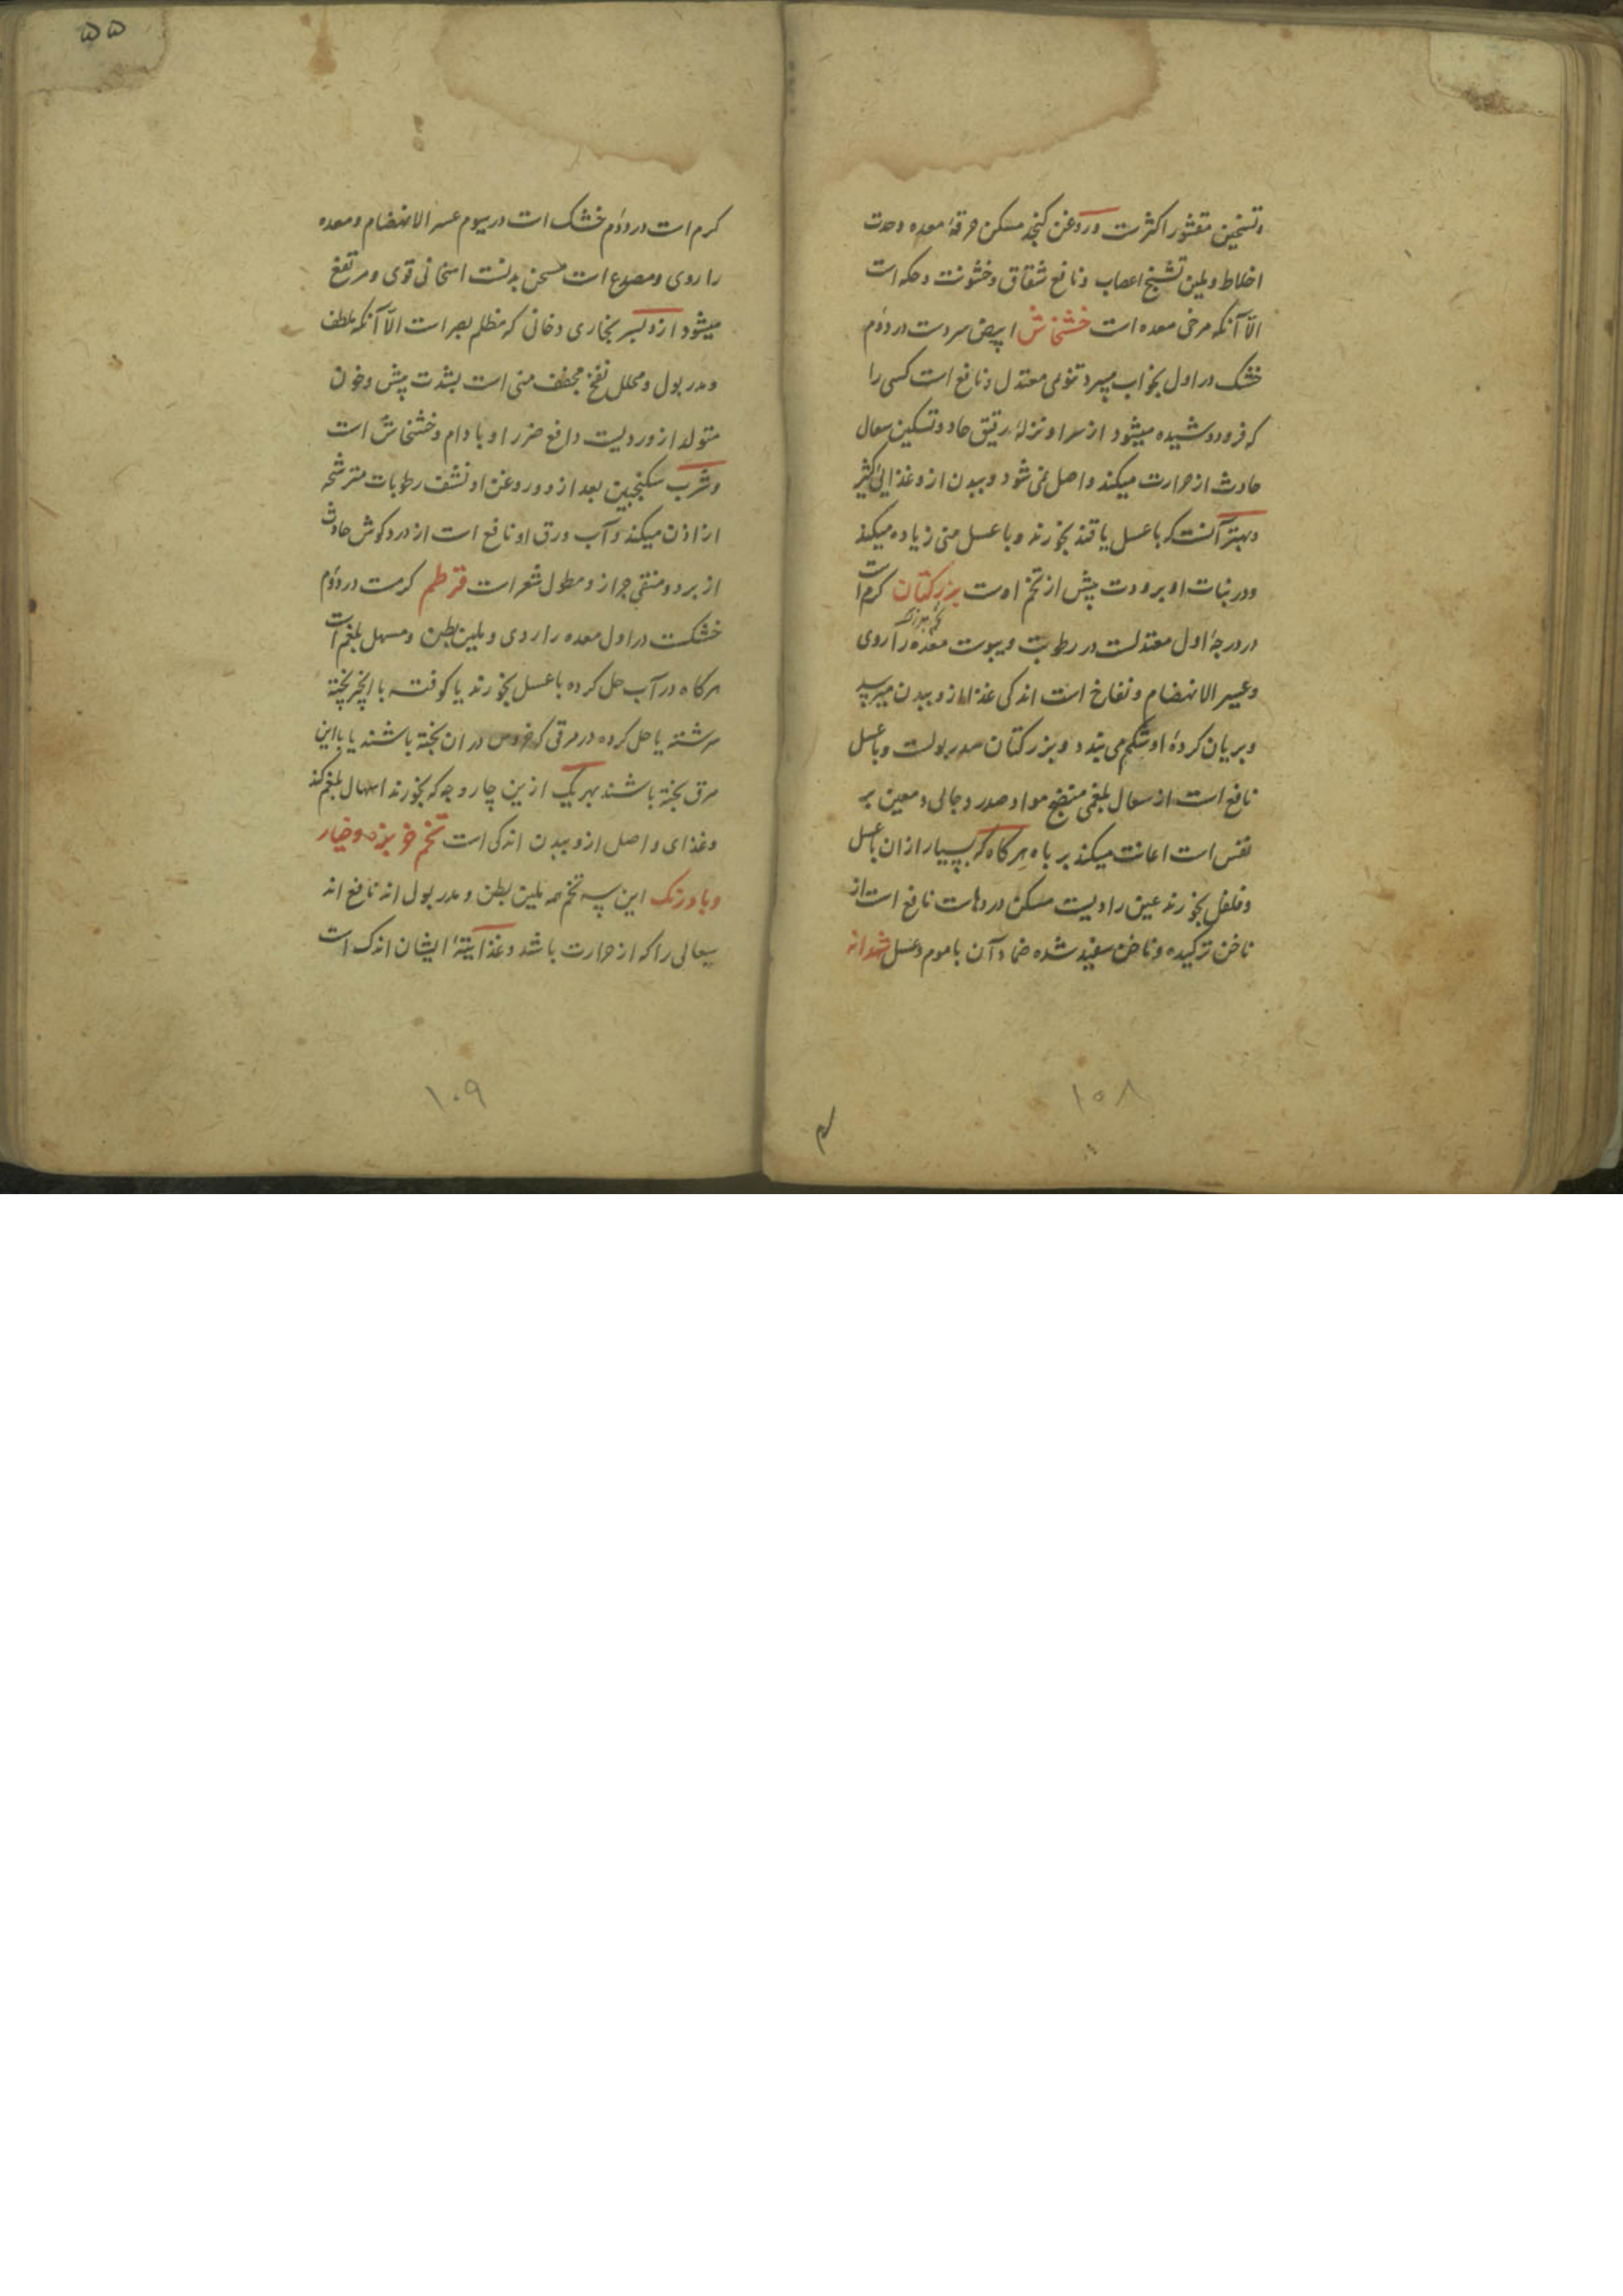 و تسخین مقشور اکثرست و روغن کنجد مسکن حرقهٔ معده و حدت
اخلاط و ملین تشنج اعصاب و نافع شقاق و خشونت و حکه است
الّا آنکه مرخی معده است خشخاش ابیض سردست در دوم
خشک در اول بخواب میبرد تنومی معتدل و نافع است کسی را
که فرو دوشیده میشود از سر او نزلهٔ رقیق حاد و تسکین سعال
حادث از حرارت میکند و اصل نمی شود و ببدن ازو غذایی کثیر
و بهتر آنست که با عسل یا قند بخورند و با عسل منی زیاده میکند
و در نبات او برودت پیش از تخم اوست بزر کتان کرم است
در درجهٔ اول معتدلست در رطوبت و یبوست معده را ردی
و عسیر الانهضام و نفاخ است اندکی غذا ازو ببدن میرسد
و بریان کردهٔ او شکم می بندد و بزر کتان مدر بولست و با عسل
نافع است از سعال بلغمی منضج مواد صدر و جالی و معین بر
نفس است اعانت میکند بر باه هرکاه که بسیار از ان با عسل
و فلفل بخورند عین راویست مسکن دردهاست نافع است از
ناخن ترکیده و ناخن سفید شده ضماد آن با موم و عسل شهدانه
۱۰۸
۵۵
کرم است در دوم خشک است در سیوم عسر الانهضام و معده
را ردی و مصدع است مسخن بدنست اسخانی قوی و مرتفع
میشود ازو بسر بخاری دخانی که مظلم بصر است الّا آنکه ملطف
و مدر بول و محلل نفخ مجفف منی است بشدت پیش و خون
متولد ازو ردیست دافع ضرر او بادام و خشخاش است
و شرب سکنجبین بعد ازو و روغن او نشف رطوبات مترشحه
از اذن میکند و آب ورق او نافع است از درد کوش حادث
از برد و منقی جراز و مطول شعر است قرطم کرمست در دوم
خشکست در اول معده را ردی و ملین بطن و مسهل بلغم است
هرکاه در آب حل کرده با عسل بخورند یا کوفته با انجیر پخته
سرشته یا حل کرده در مرقی که خروس در ان پخته باشند یا با این
مرق پخته باشند بهر یک ازین چار وجه که بخورند اسهال بلغم کند
و غذای واصل ازو ببدن اندکی است تخم خربزه و خیار
و بادرنک این سه تخم همه ملین بطن و مدر بول اند نافع اند
سعالی را که از حرارت باشد و غذائیتهٔ ایشان اندک است
۱۰۹